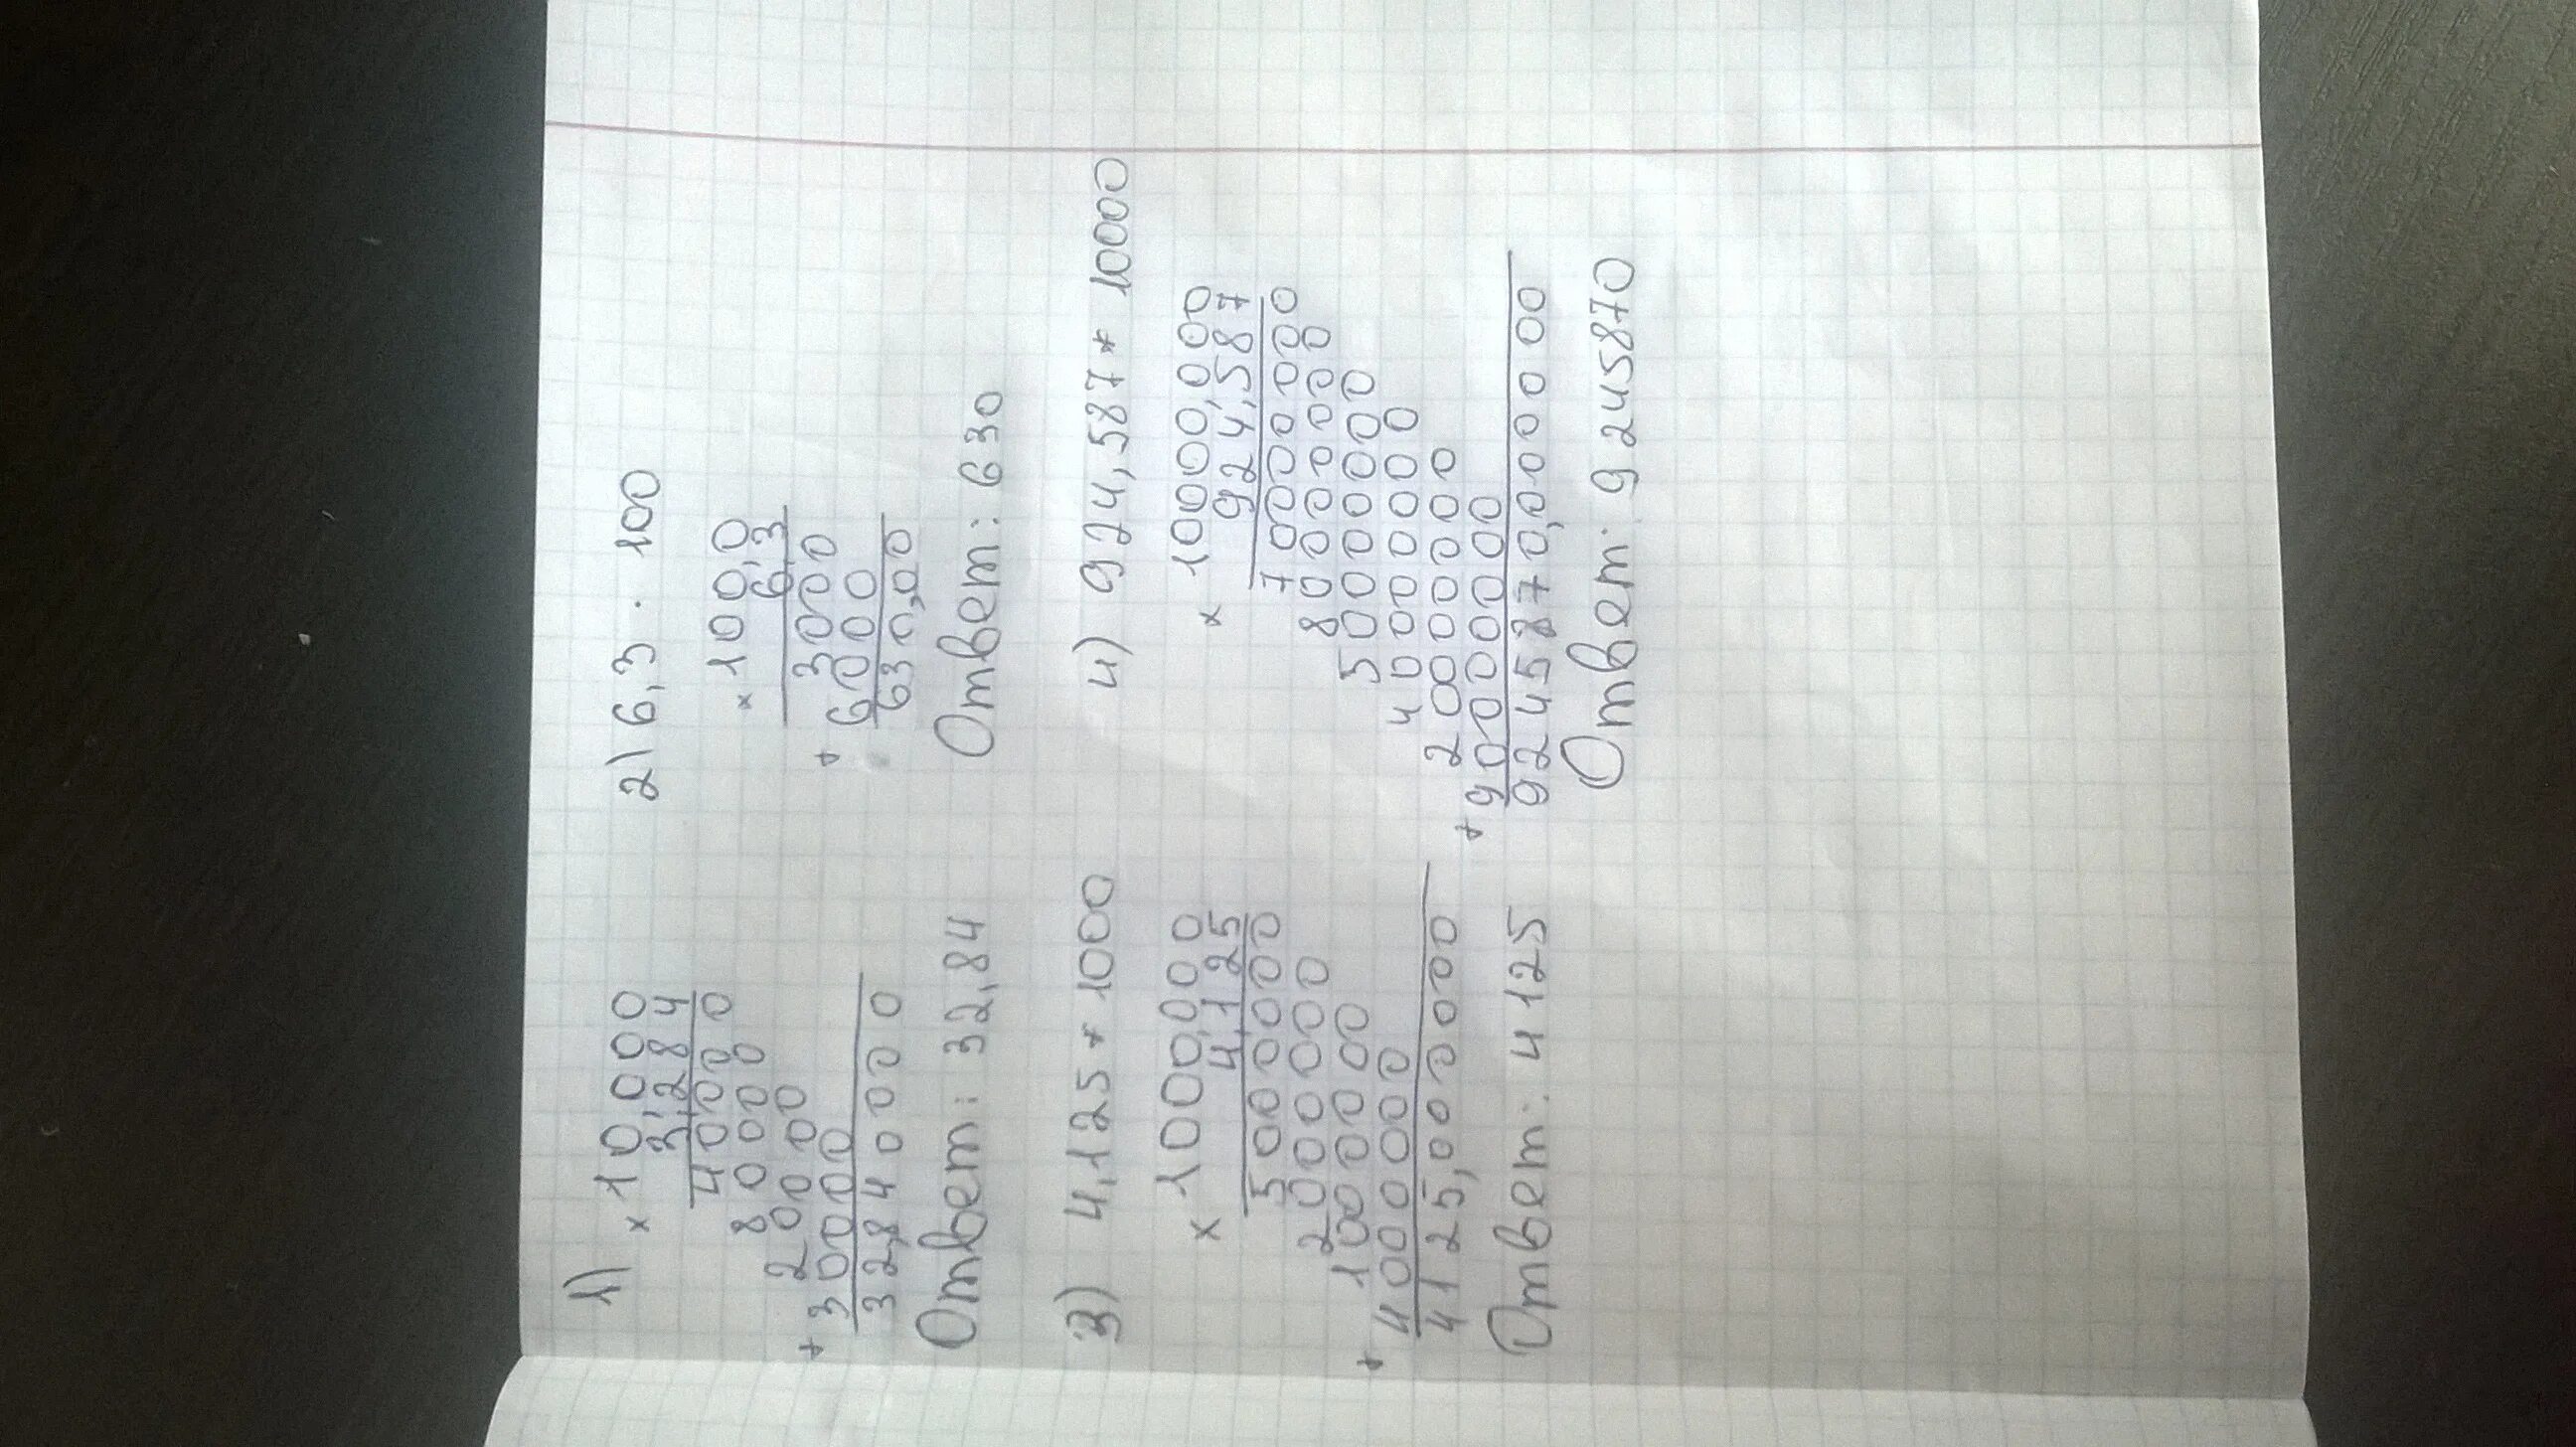 1)
× 10,000
3,284
40000
80000
20000
+ 30000
32,840000
Ответ: 32,84
2) 6,3 · 100
× 100,0
6,3
3000
+ 6000
630,00
Ответ: 630
3) 4,125 * 1000
× 1000,000
4,125
5000000
2000000
1000000
+ 4000000
4125,000000
Ответ: 4125
4) 924,587 * 10000
× 10000,000
924,587
70000000
80000000
50000000
40000000
20000000
+ 90000000
9245870,000000
Ответ: 9245870